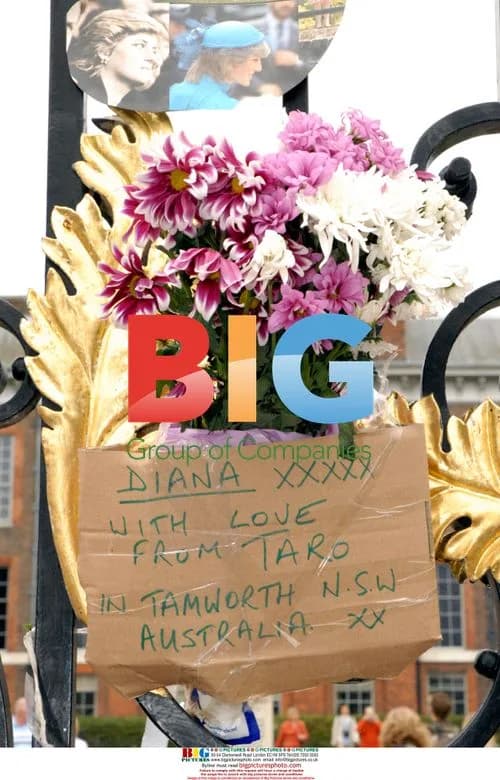 BIG
Group of Companies
DIANA XXXXX
WITH LOVE
FROM TARO
IN TAMWORTH N.S.W
AUSTRALIA. XX
BIG PICTURES
www.bigpicturesphoto.com
Byline must read bigpicturesphoto.com